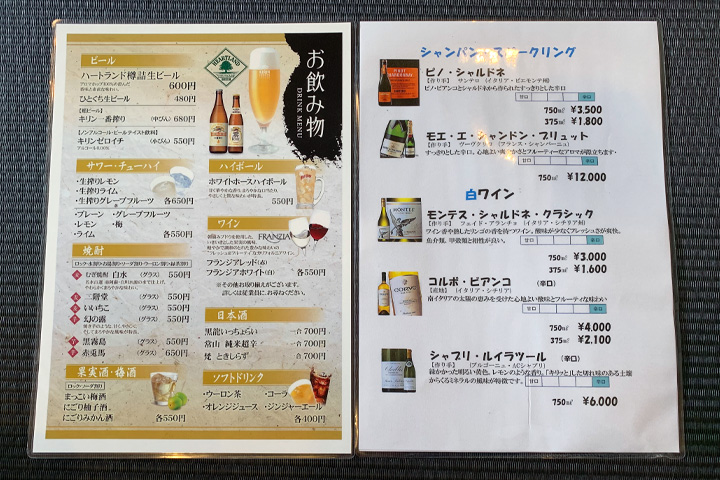 お飲み物
DRINK MENU
ビール
HEARTLAND
ハートランド樽詰生ビール
600円
ひとくち生ビール 480円
【瓶ビール】
キリン一番搾り (中びん) 680円
【ノンアルコール・ビールテイスト飲料】
キリンゼロイチ (小びん) 550円
アルコール0.00%
サワー・チューハイ
・生搾りレモン
・生搾りライム
・生搾りグレープフルーツ 各650円
・プレーン ・グレープフルーツ
・レモン ・梅
・ライム 各550円
焼酎
むぎ焼酎 白水 (グラス) 550円
二階堂 (グラス) 550円
いいちこ (グラス) 550円
幻の露 (グラス) 550円
黒霧島 (グラス) 550円
赤兎馬 (グラス) 650円
果実酒・梅酒
ロック・ソーダ割り
まっこい梅酒
にごり柚子酒
にごりみかん酒 各550円
ハイボール
ホワイトホースハイボール
550円
ワイン
FRANZIA
フランジアレッド(赤)
フランジアホワイト(白) 各550円
※その他お取り揃えがございます。
詳しくは従業員にお尋ねください。
日本酒
黒龍いっちょらい 一合700円
常山 純米超辛 一合700円
梵 ときしらず 一合700円
ソフトドリンク
・ウーロン茶 ・コーラ
・オレンジジュース ・ジンジャーエール
各400円
シャンパン・スパークリング
ピノ・シャルドネ
【作り手】 サンテロ (イタリア・ピエモンテ州)
ピノ・ビアンコとシャルドネから作られたすっきりとした辛口
甘口 辛口
750㎖ ¥3,500
375㎖ ¥1,800
モエ・エ・シャンドン・ブリュット
【作り手】 (フランス・シャンパーニュ)
甘口 辛口
750㎖ ¥12,000
白ワイン
モンテス・シャルドネ・クラシック
ワイン香や熟したリンゴの香を持つワイン。酸味が少なくフレッシュさが爽快。
魚介類、甲殻類と相性が良い。
甘口 辛口
750㎖ ¥3,000
375㎖ ¥1,600
コルボ・ビアンコ (辛口)
【産地】 (イタリア・シチリア)
南イタリアの太陽の恵みを受けた心地よい酸味とフルーティな味わい
甘口 辛口
750㎖ ¥4,000
375㎖ ¥2,100
シャブリ・ルイラツール (辛口)
【作り手】 (ブルゴーニュ・ACシャブリ)
緑かかった明るい黄色。レモンのような香り。「キリッ」とした切れ味のある土壌
からくるミネラルの風味が特徴です。
甘口 辛口
750㎖ ¥6,000